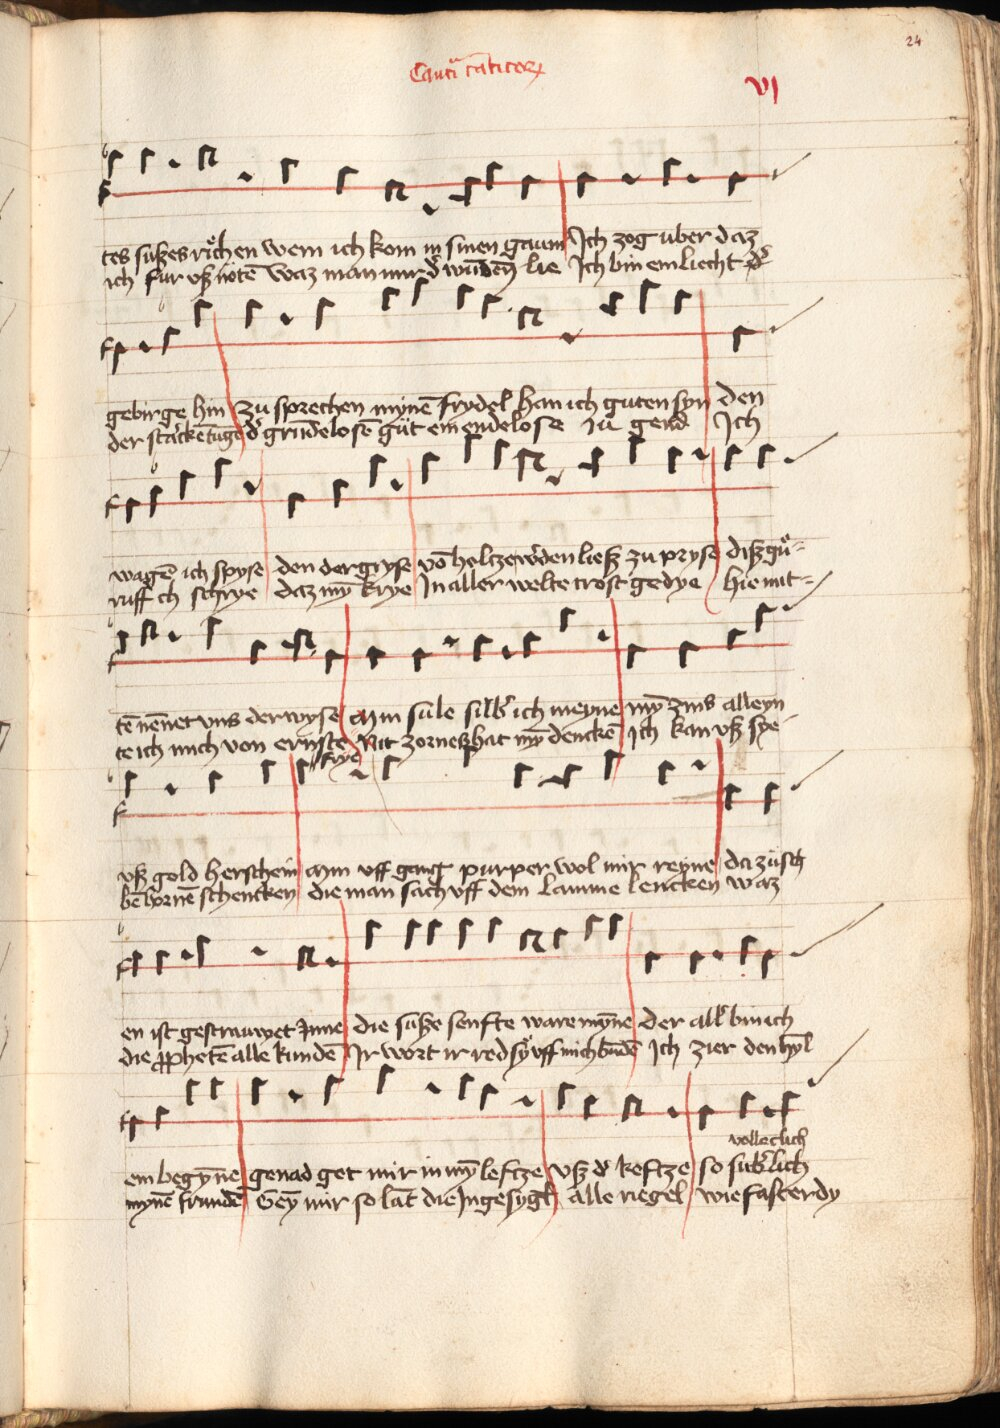 24
Cantic̄ cāticoꝝ
VI
tes sußes rὅchen wem ich kom in sinen gaum Ich zog uber daz
ich fur uß nöten Waz man mir wūdeñ lie Ich bin ein liecht
gebirge hin zu sprechen mynē frydel han ich guten syn den
der starckē tuge d' grūdelosē gut ein endelose gend Ich
wagē ich spyse den der gryse vō holtze w'den ließ zu pryse diß gů-
ruff ch schrye daz mȳ krye In aller welte trost gedye hie mit-
tē nēnet vns der wyse Min sule silb' ich meyne mȳ zins alleyn
te ich mich von ernste frye Nit zornes hat mȳ denckē Ich kan uß sye-
uß gold her schein Min uff gang purper wol mir reyne da züsch
bē bornē schencken die man sach uff dem lamme lencken waz
en ist gestrauwet Inne die suße senfte ware mȳne der all' bin ich
die ꝓphetē alle kundē Ir wort ir red sy uff mich būdē Ich zier den hȳl
volleclich
ein begȳne genad get mir in mȳ leftze uß d' keftze so sub'lich
mynē frundē Gey mir so lat die Ingesygl alle riegel wie fast er dy